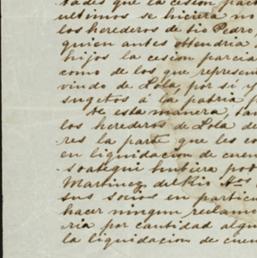 tades que la cesion
ultimos se hiciera no
los herederos de tio Pedro,
quien antes
hijos la cesion parcia
como de los que represen
viudo de Lola, por si y
sugetos á la patria p
De esta manera, tan
los herederos de Lola de
res la parte que les co
en liquidacion de cuen
soategui hubiera pod
Martinez del Rio Hos
sus socios en particu
hacer ningun reclamo
ria por cantidad algu
la liquidacion de cuen